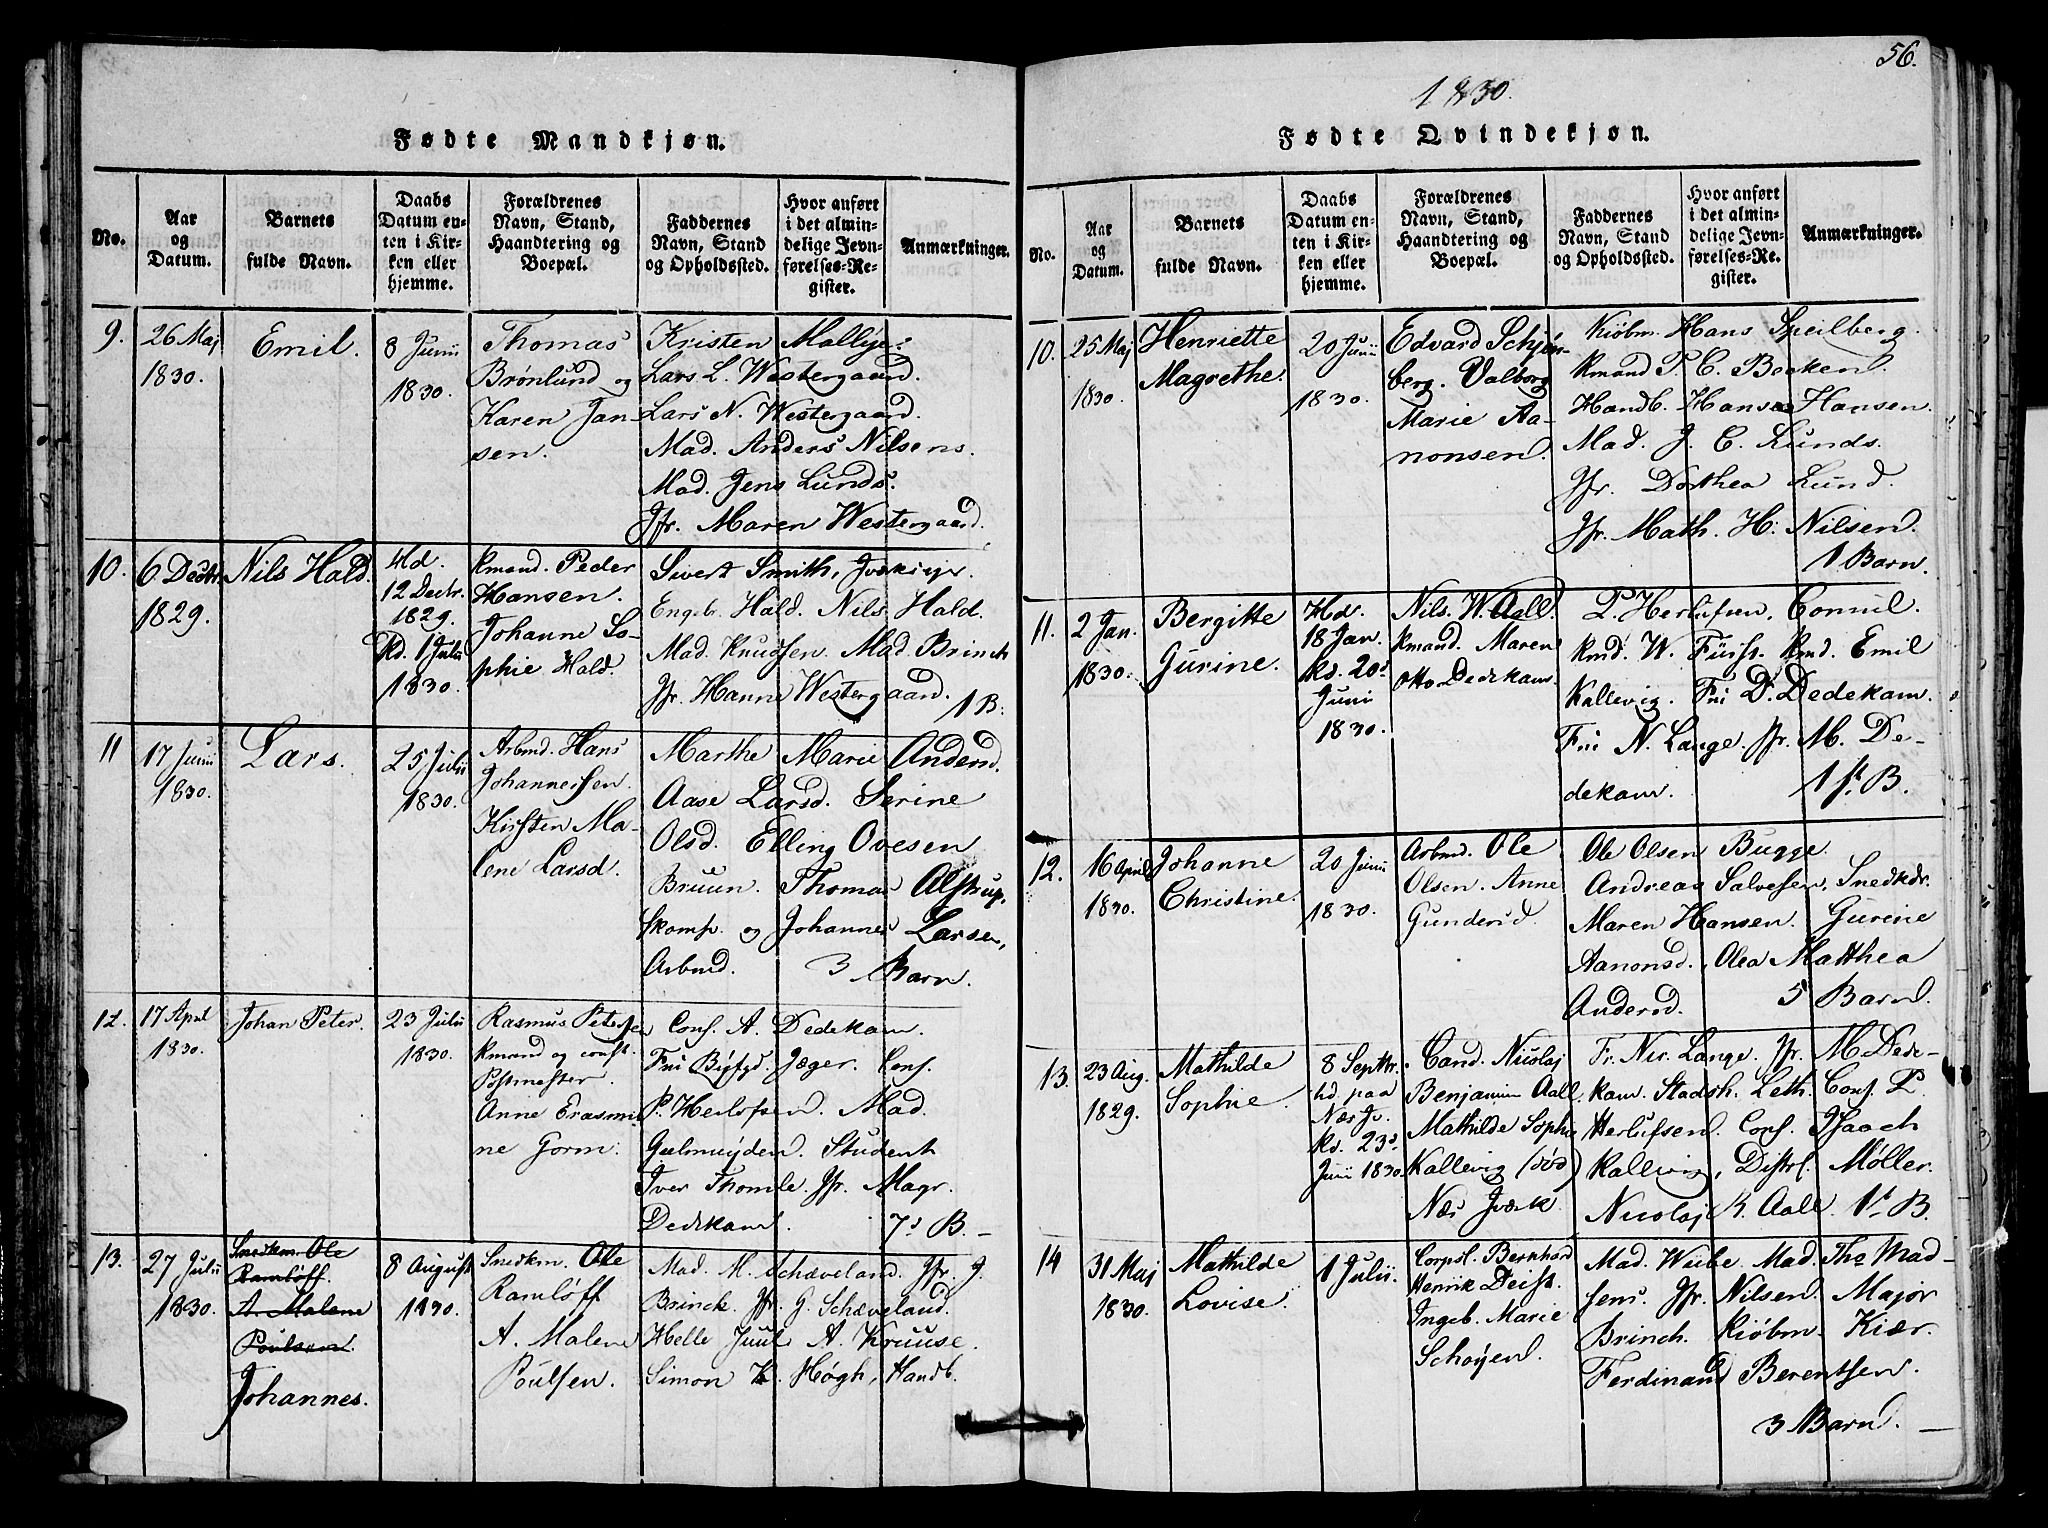 56.
1830.
Fødte Mandkjøn.
No.
Aar
og
Datum.
Barnets
fulde Navn.
Daabs
Datum en-
ten i Kir-
ken eller
hjemme.
Forældrenes
Navn, Stand,
Haandtering og
Boepæl.
Faddernes
Navn, Stand
og Opholdssted.
Hvor anført
i det almin-
delige Jevn-
førelses-Re-
gister.
Anmærkninger.
9.
26 Maj
1830.
Emil.
8 Junii
1830.
Thomas
Brønlund og
Karen Jan-
sen.
Kristen
Lars L. Westergaard.
Lars N. Westergaard.
Mad. Anders Nilsens.
Mad. Jens Lunds.
Jfr. Maren Westergaard.
10.
6 Decbr.
1829.
Nils Hald.
Hd.
12 Decbr.
1829.
Kd. 1 Julii
1830.
Kmand. Peder
Hansen.
Johanne So-
phie Hald.
Sivert Smith,
Engeb. Hald. Nils Hald.
Mad. Knudsen. Mad. Brinch
Jfr. Hanne Westergaard.
1 B.
11
17 Junii
1830.
Lars.
25 Julii
1830.
Arbmd. Hans
Johannessen.
Kirsten Ma-
lene Larsd.
Marthe Marie Andersd.
Aase Larsd. Serine
Olsd. Elling Ovesen
Bruun. Thomas Alstrup,
Skomr. og Johannes Larsen,
Arbmd. 3 Barn.
12.
17 April
1830.
Johan Peter.
23 Julii
1830.
Rasmus Petersen
Kmand og const.
Postmester.
Anne Erasmi-
ne Gorm.
Cons. A. Dedekam.
Fru Bÿfgd. Jæger. Cons.
P. Herlofsen. Mad.
Gulmuÿden. Student
Iver Thomle. Jfr. Magr.
Dedekam. 7d B. -
13.
27 Julii
1830.
Snedkm. Ole
Ramløff
A. Malene
Poulsen.
Johannes.
8 August
1830.
Snedkm. Ole
Ramløff
A. Malene
Poulsen.
Mad. M. Schæveland. Jfr. J.
Brinck. Jfr. G. Schæveland.
Helle Juul A. Kruuse.
Simon K Høgh, Handb.
Fødte Qvindekjøn.
No.
Aar
og
Datum.
Barnets
fulde Navn.
Daabs
Datum en-
ten i Kir-
ken eller
hjemme.
Forældrenes
Navn, Stand,
Haandtering og
Boepæl.
Faddernes
Navn, Stand
og Opholdssted.
Hvor anført
i det almin-
delige Jevn-
førelses-Re-
gister.
Anmærkninger.
10.
25 Maj
1830.
Henriette
Magrethe.
20 Junii
1830.
Edvard Schjøn-
berg. Valborg
Marie Aa-
nonsen.
Kiøbm. Hans Speilberg.
Kmand P. C. Becken.
Handb. Hans Hansen.
Mad. J. C. Lunds.
Jfr. Dorthea Lund.
Jfr. Math. H: Nilsen.
1 Barn.
11.
2 Jan.
1830.
Bergitte
Gurine.
Hd.
18 Jan.
Kd. 20d
Junii
1830.
Nils. W. Aall.
Kmand. Maren
Otto Dedekam.
P. Herlufsen, Consul.
Kmd. W. Fürst. Kmd. Emil
Kallevig. Fru D. Dedekam.
Fru N. Lange. Jfr. M. De-
dekam. 1st. B.
12.
16 April
1830.
Johanne
Christine.
20 Junii
1830.
Arbmd. Ole
Olsen. Anne
Gundersd
Ole Olsen Bugge.
Andreas Salvesen, Snedkdr.
Maren Hansen. Gurine
Aanonsd. Olea Matthea
Andersd. 5 Barn.
13.
23 Aug.
1829.
Mathilde
Sophie
8 Septbr.
hd paa
Næs
Kd. 23d
Junii 1830.
Cand. Nicolaj
Benjamin Aall,
Mathilde Sophie
Kallevig (død)
Næs Jværk
Fr. Nic. Lange. Jfr. M. Dede-
kam. Stadsh. Leth. Cons. P.
Herlufsen. Cons. Isaach
Kallevig, Distrl. Møller.
Nicolaj R. Aall. 1t. B.
14
31 Maj
1830.
Mathilde
Lovise.
1 Julii.
Corpsl. Bernhard
Henrik Deist.
Ingeb. Marie
Schøÿen.
Mad. Wiibe. Mad. Tho Mad-
sens. Jfr. Nilsen. Major
Brinch. Kiøbm. Kiær.
Ferdinand Berentsen.
3 Barn. -